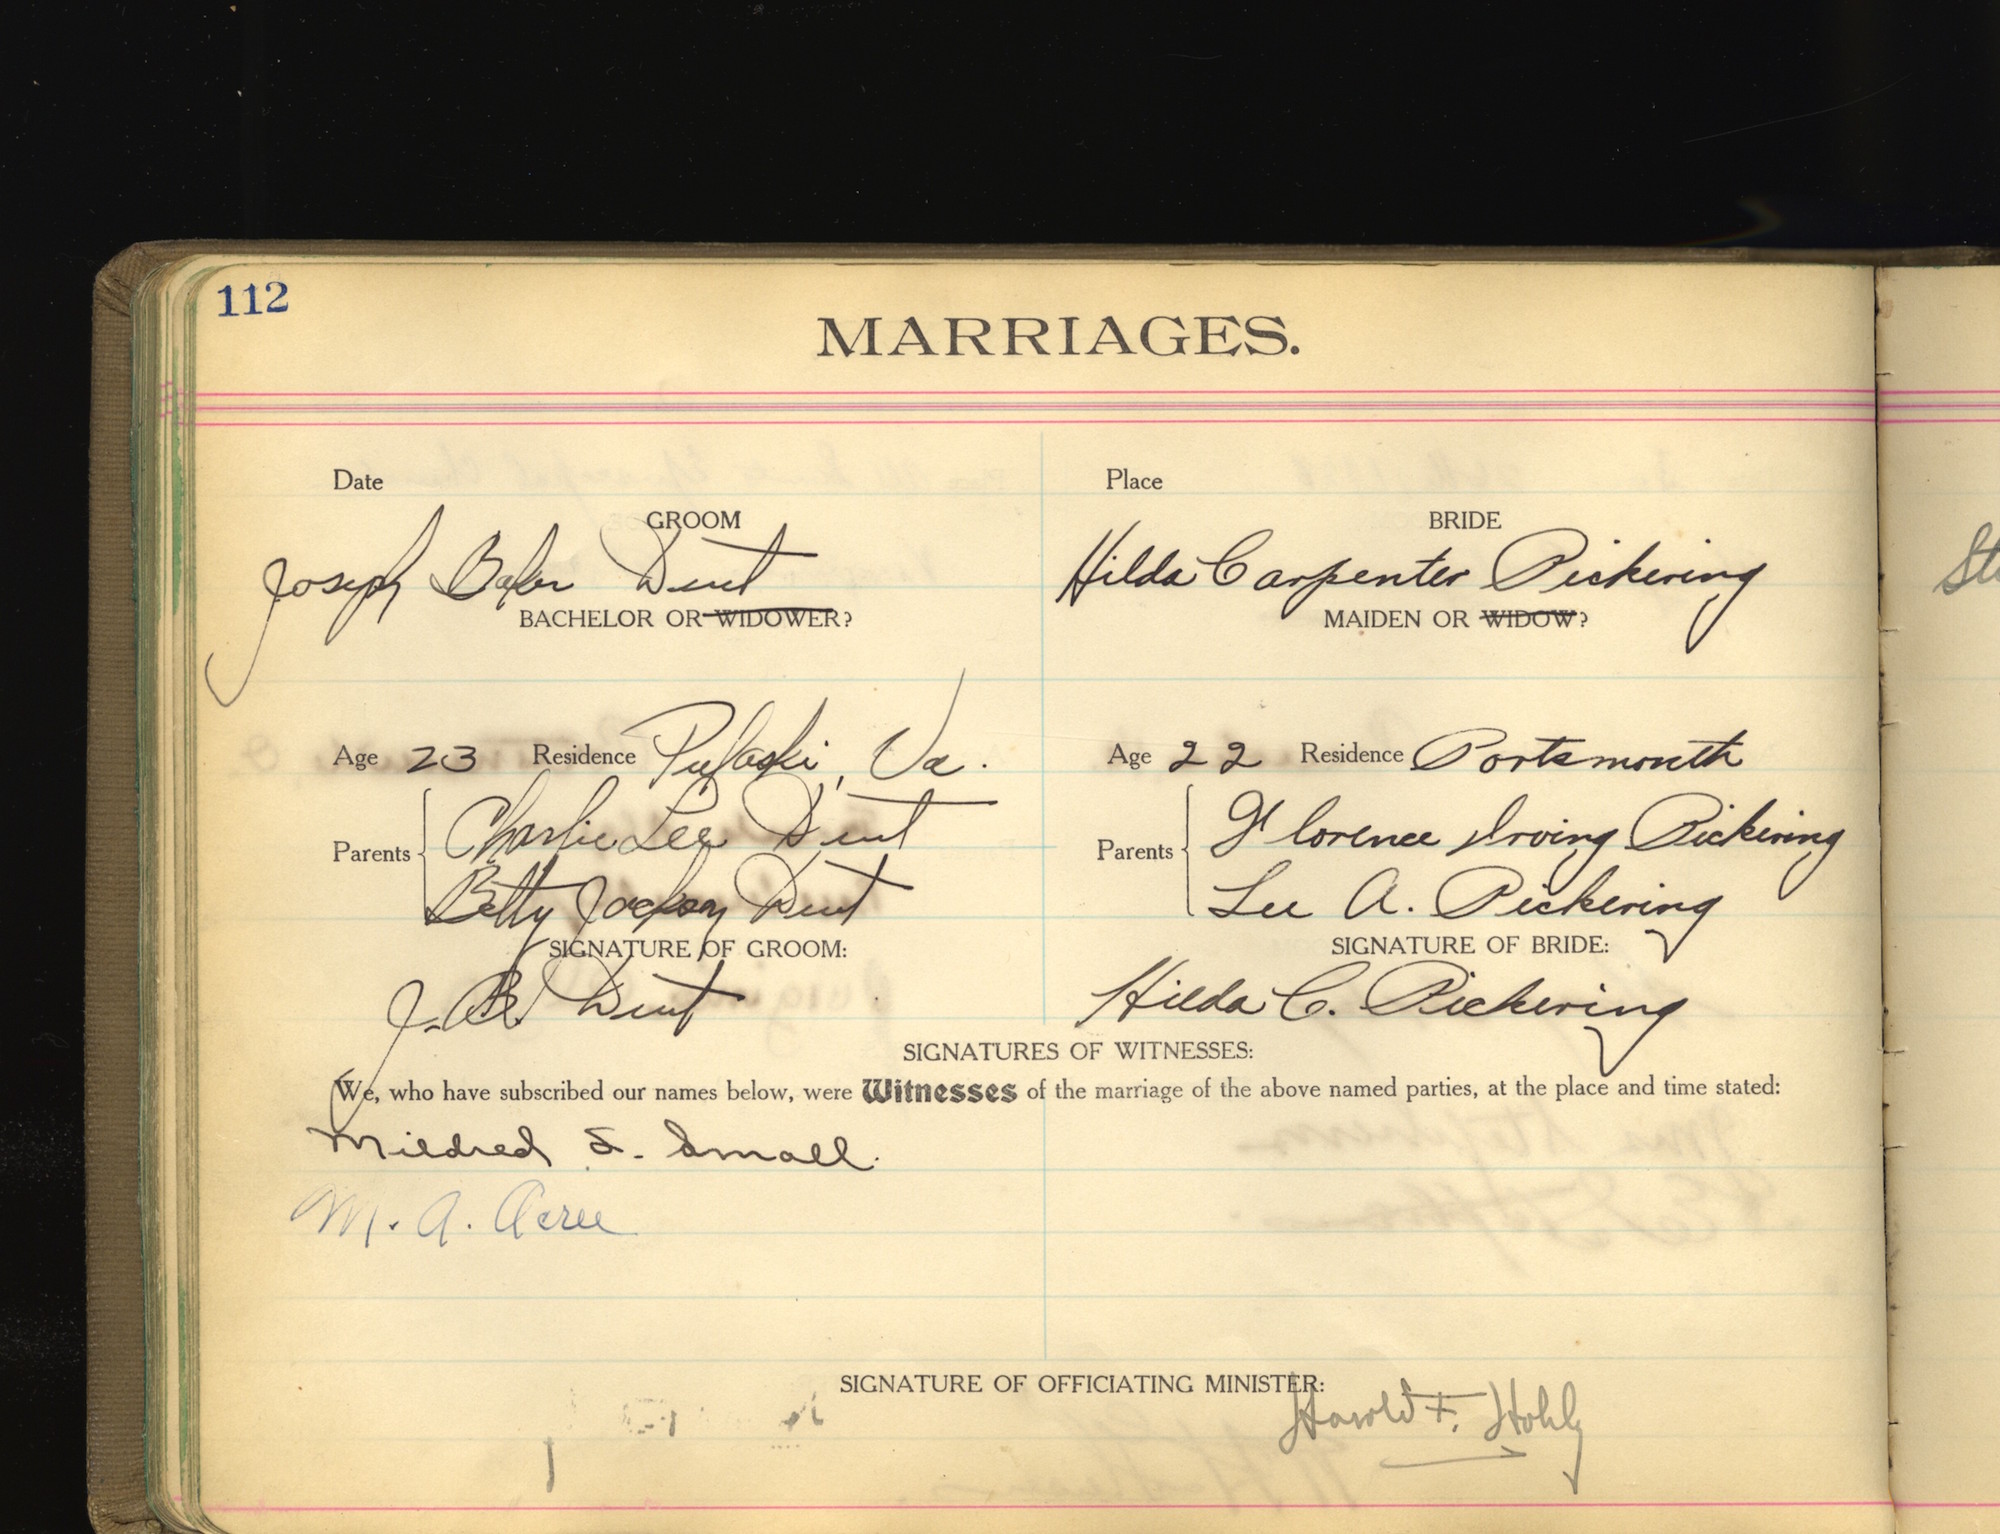 112
MARRIAGES.
Date Place
GROOM BRIDE
Joseph Baker Dent Hilda Carpenter Pickering
BACHELOR OR WIDOWER? MAIDEN OR WIDOW?
Age 23 Residence Pulaski, Va. Age 22 Residence Portsmouth
Parents Charlie Lee Dent Parents Florence Irving Pickering
Betty Jackson Dent Lee A. Pickering
SIGNATURE OF GROOM: SIGNATURE OF BRIDE:
J. B. Dent Hilda C. Pickering
SIGNATURES OF WITNESSES:
We, who have subscribed our names below, were Witnesses of the marriage of the above named parties, at the place and time stated:
Mildred S. Small.
M. A. Acree
SIGNATURE OF OFFICIATING MINISTER:
Harold F. Hohly